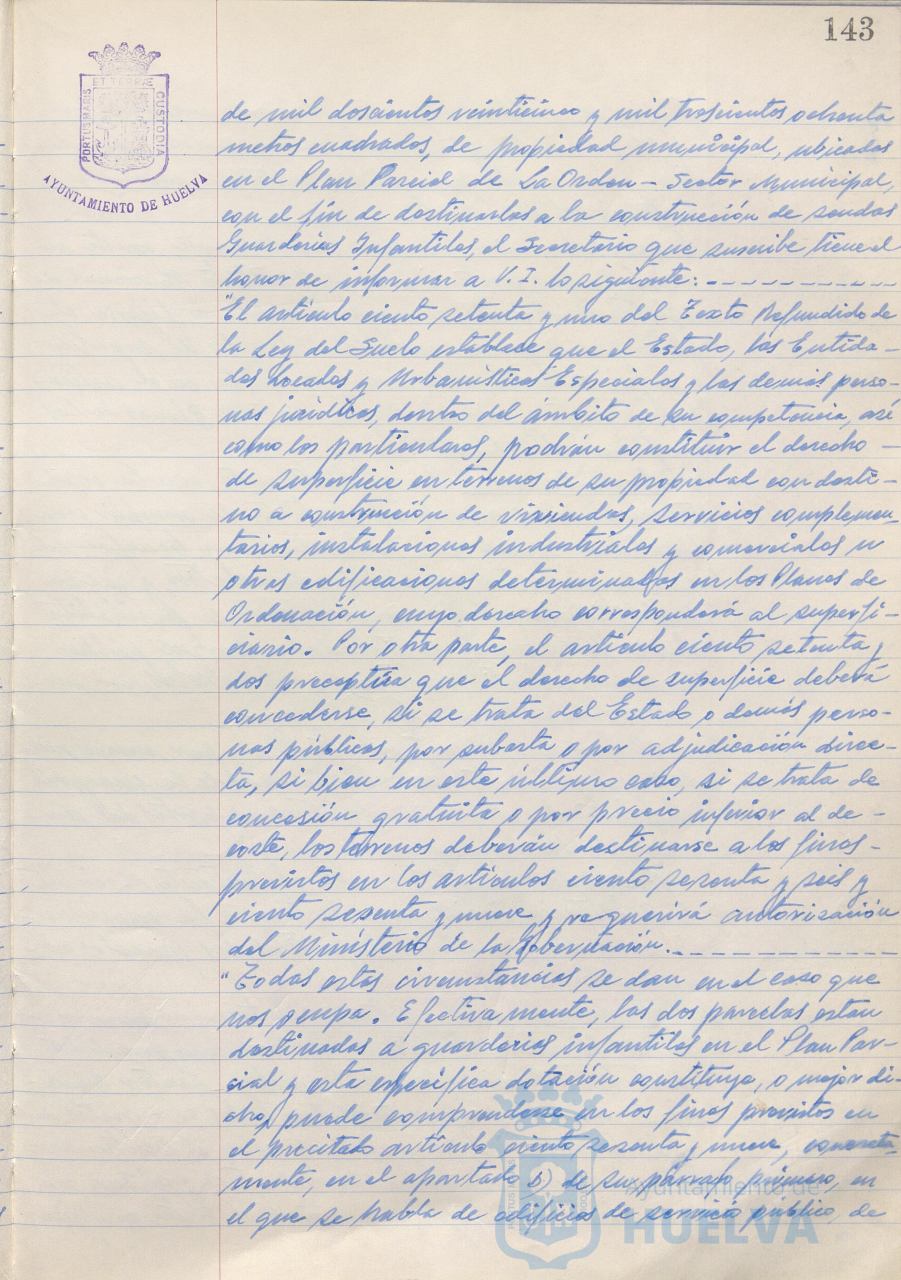 143
ET TERRÆ
PORTUS MARIS
CUSTODIA
AYUNTAMIENTO DE HUELVA
de mil doscientos veinticinco y mil trescientos ochenta
metros cuadrados, de propiedad municipal, ubicados
en el Plan Parcial de La Orden - Sector Municipal,
con el fin de destinarlos a la construcción de sendas
Guarderías Infantiles, el Secretario que suscribe tiene el
honor de informar a V. I. lo siguiente: - - - - - - - - - -
"El artículo ciento setenta y uno del Texto Refundido de
la Ley del Suelo establece que el Estado, las Entida-
des Locales y Urbanísticas Especiales y las demás perso-
nas jurídicas, dentro del ámbito de su competencia, así
como los particulares, podrán constituir el derecho -
de superficie en terrenos de su propiedad con desti-
no a construcción de viviendas, servicios complemen-
tarios, instalaciones industriales y comerciales u
otras edificaciones determinadas en los Planes de
Ordenación, cuyo derecho corresponderá al superfi-
ciario. Por otra parte, el artículo ciento setenta y
dos preceptúa que el derecho de superficie deberá
concederse, si se trata del Estado o demás perso-
nas públicas, por subasta o por adjudicación direc-
ta, si bien en este último caso, si se trata de
concesión gratuita o por precio inferior al de -
coste, los terrenos deberán destinarse a los fines -
previstos en los artículos ciento sesenta y seis y
ciento sesenta y nueve y requerirá autorización
del Ministerio de la Gobernación. - - - - - - - - - -
"Todas estas circunstancias se dan en el caso que
nos ocupa. Efectivamente, las dos parcelas están
destinadas a guarderías infantiles en el Plan Par-
cial y esta específica dotación constituye, o mejor di-
cho, puede comprenderse en los fines previstos en
el precitado artículo ciento sesenta y nueve, concreta-
mente, en el apartado b) de su párrafo primero, en
el que se habla de edificios de servicio público, de
Ayuntamiento de
HUELVA